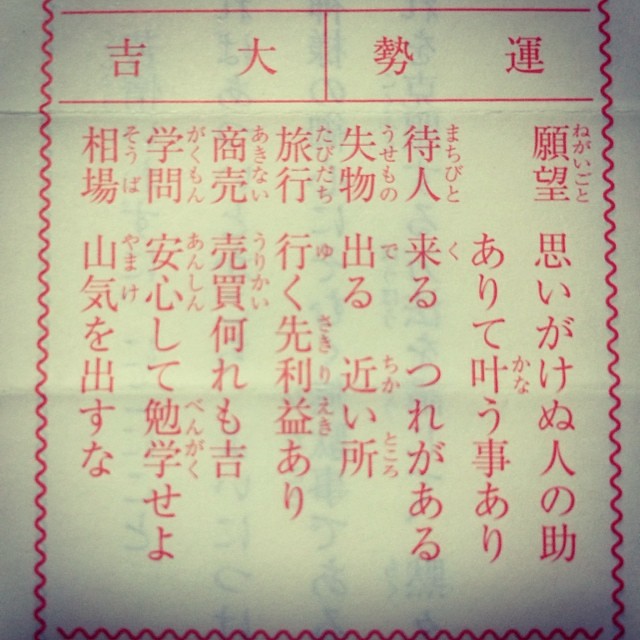 運勢 大吉
願望 思いがけぬ人の助
ありて叶う事あり
待人 来る つれがある
失物 出る 近い所
旅行 行く先利益あり
商売 売買何れも吉
学問 安心して勉学せよ
相場 山気を出すな